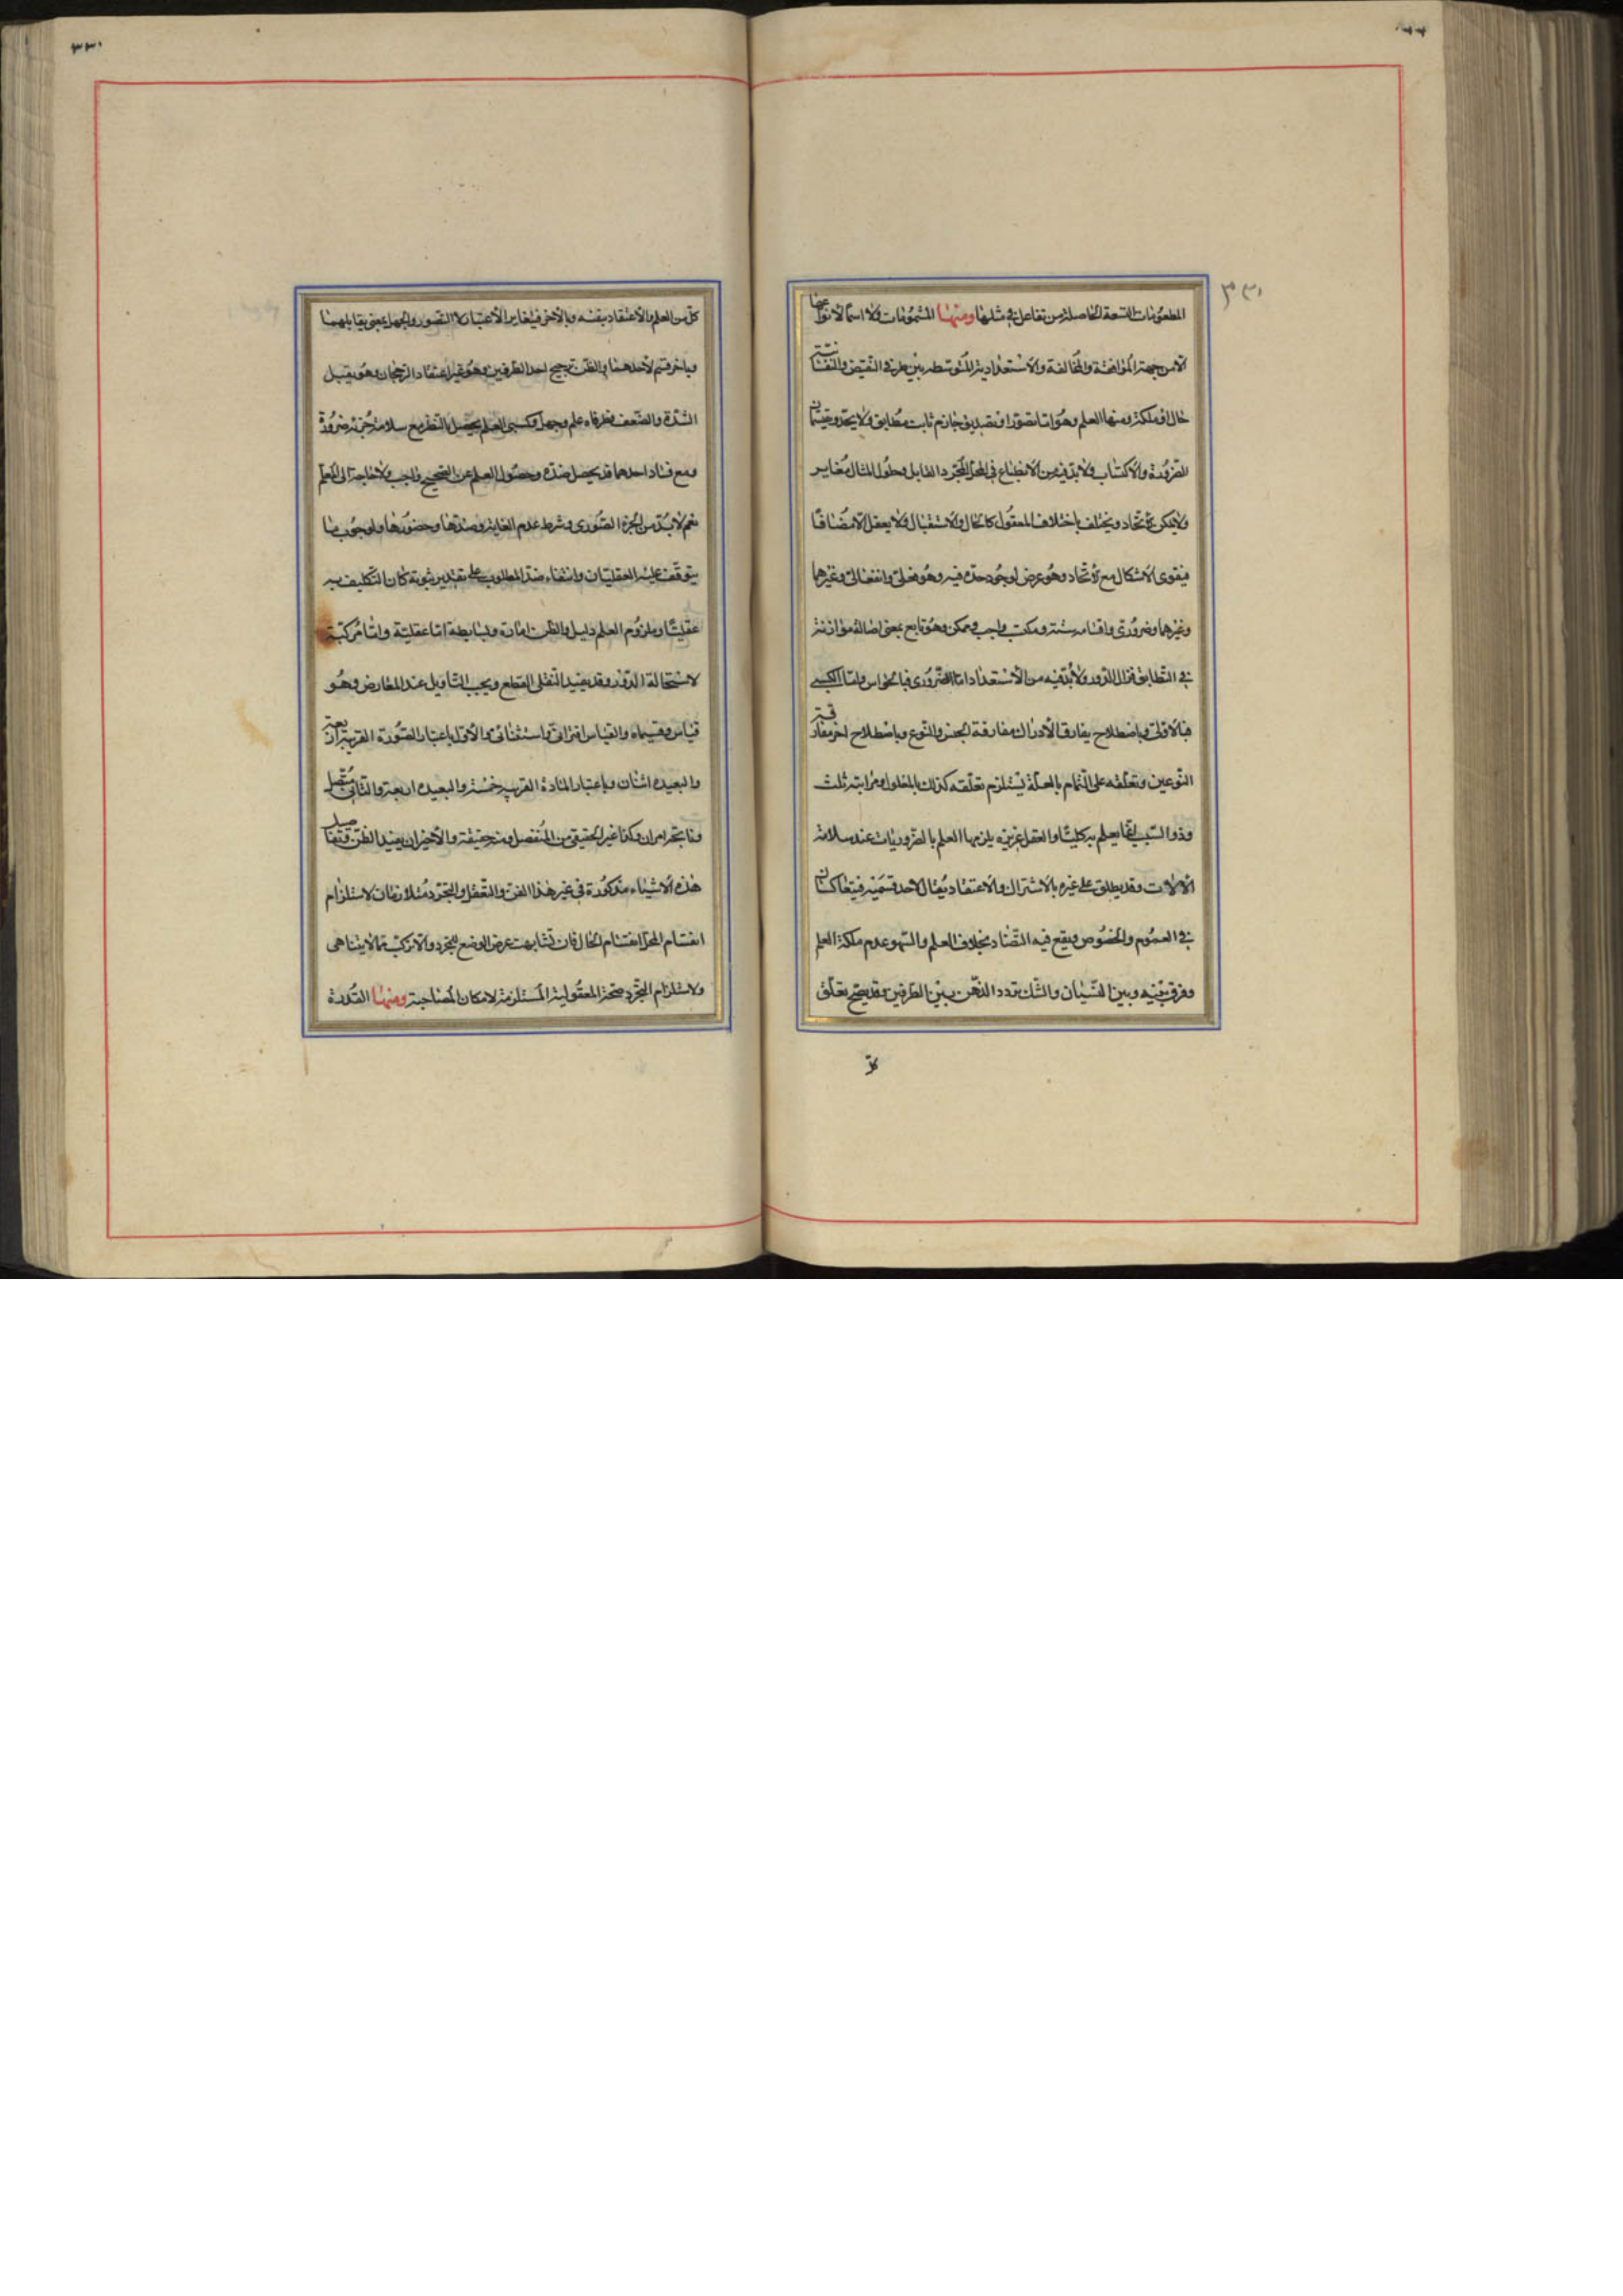 ٣٣٠
المطعومات التسعة الحاصلة من تفاعل في مثلها ومنها المشمومات ولا اسما لأنواعها
الا من جهة الموافقة والمخالفة والاستعدادية المتوسطة بين طرفي النقيض والنفسانية
حال او ملكة ومنها العلم وهو اما تصور او تصديق جازم ثابت مطابق ولا يحد ويقتسمان
الضرورة والاكتساب ولا بد فيه من الانطباع في المحل المجرد القابل وحلول المثال مغاير
ولا يمكن الاتحاد ويختلف باختلاف المعقول كالحال والاستقبال ولا يعقل الا مضافا
فيقوى الاشكال مع الاتحاد وهو عرض لوجود حده فيه وهو فعلي وانفعالي وغيرهما
وغيرهما وضروري واقسامه ستة ومكتسب واجب وممكن وهو تابع بمعنى اصالة موازنة
في التطابق فزال الدور ولا بد فيه من الاستعداد اما الضروري فبالحواس واما الكسبي
فبالاولى وباصطلاح يفارق الادراك مفارقة الجنس والنوع وباصطلاح اخر مفارقة
النوعين وتعلقه على التمام بالعلة يستلزم تعلقه كذلك بالمعلول ومراتبه ثلث
وذو السبب انما يعلم به كليا والعقل غريزة يلزمها العلم بالضروريات عند سلامة
الآلات وقد يطلق على غيره بالاشتراك والاعتقاد يقال لاحد قسميه فيتعاكسان
في العموم والخصوص ويقع فيه التضاد بخلاف العلم والسهو عدم ملكة العلم
وفرق بينه وبين النسيان والشك تردد الذهن بين الطرفين وقد يصح تعلق
كل
٣٣٠
كل من العلم والاعتقاد بنفسه وبالآخر فيتغاير الاعتبار لا الصور والجهل بمعنى يقابلهما
وبآخر قسم لأحدهما والظن ترجيح احد الطرفين وهو غير اعتقاد الرجحان وهو يقبل
الشدة والضعف وطرفاه علم وجهل وكسبي العلم يحصل بالنظر مع سلامة جزئيه ضرورة
ومع فساد احدهما قد يحصل ضده وحصول العلم عن الصحيح واجب ولا حاجة الى المعلم
نعم لا بد من الجزء الصوري وشرط عدم الغاية وضدها وحضورها ولوجوب ما
يتوقف عليه العقليان وانتفاء ضد المطلوب على تقدير ثبوته كان التكليف به
عقليا وملزوم العلم دليل والظن امارة وبسايطه اما عقلية واما مركبة
لاستحالة الدور وقد يفيد النقلي القطع ويجب التأويل عند المعارض وهو
قياس وقسيماه والقياس اقتراني واستثنائي فالأول باعتبار الصورة القريبة اربعة
والبعيدة اثنان وباعتبار المادة القريبة خمسة والبعيدة اربعة والثاني متصل
وناتجه امران وكذا غير الحقيقي من المنفصل ومنه حقيقة والأخيران يفيد الظن وتفاصيل
هذه الاشياء مذكورة في غير هذا الفن والتعقل والتجرد متلازمان لاستلزام
انقسام المحل انقسام الحال فان تشابهت عرض الوضع للمجرد والا تركب مما لا يتناهى
ولاستلزام التجرد صحة المعقولية المستلزمة لامكان المصاحبة ومنها القدرة